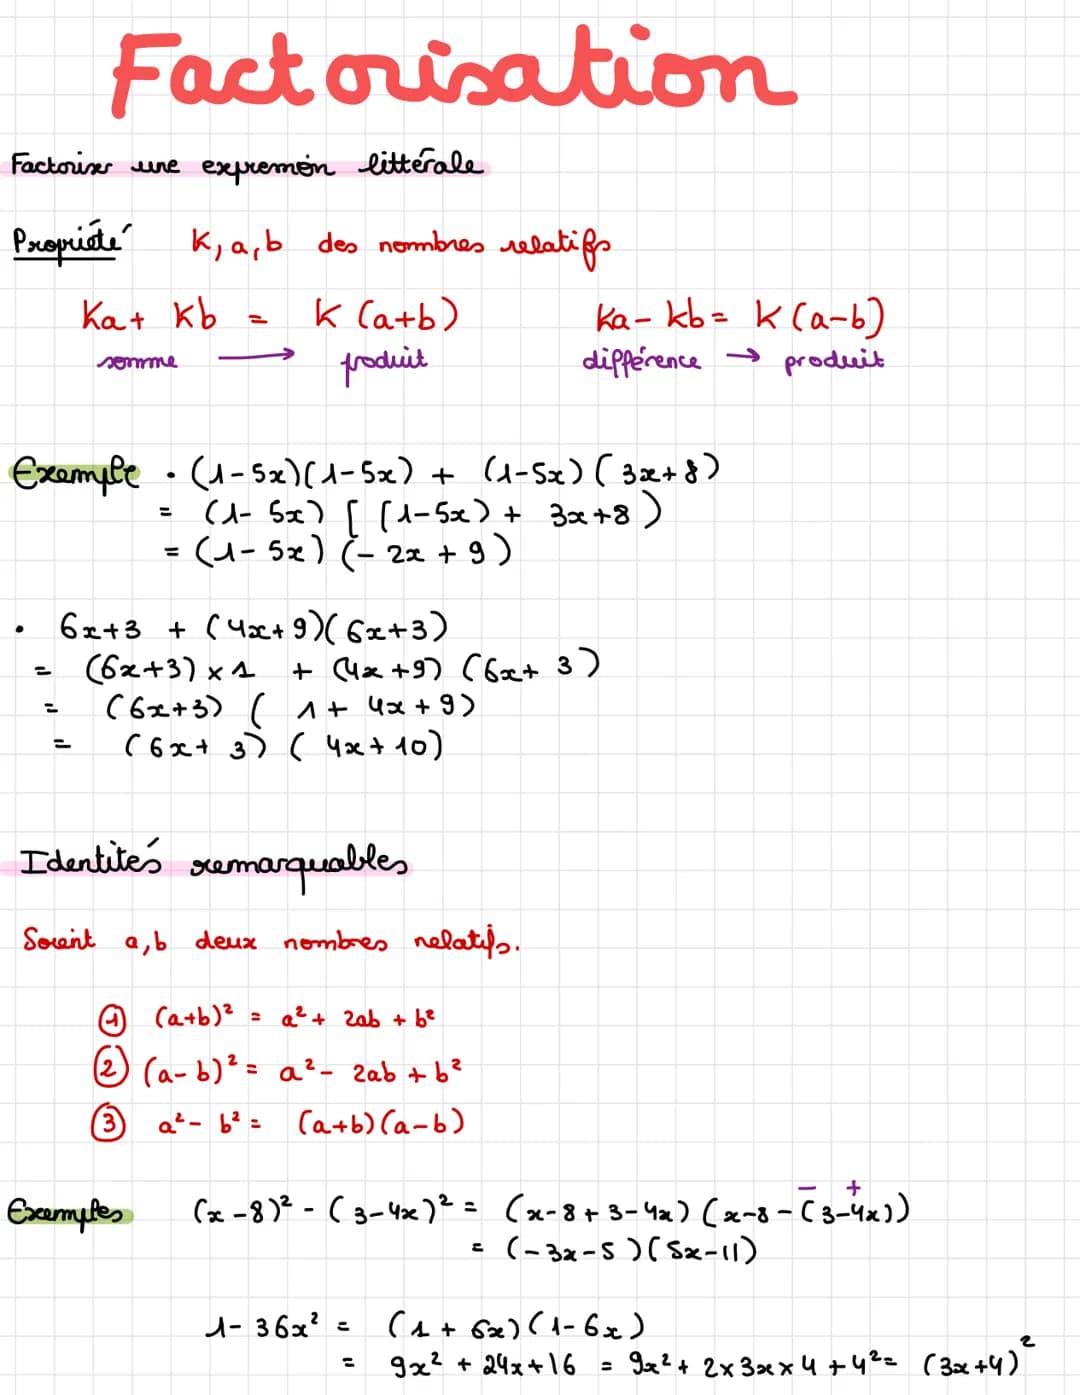 Factorisation
Factoriser une expression littérale
Propriété K, a, b des nombres relatifs
Ka + Kb = K (a+b) Ka - kb = K (a-b)
somme → produit différence → produit
Exemple • (1-5x)(1-5x) + (1-5x)(3x+8)
= (1-5x) [ (1-5x) + 3x+8 )
= (1-5x) (-2x + 9)
• 6x+3 + (4x+9)(6x+3)
= (6x+3) × 1 + (4x+9) (6x+3)
= (6x+3) ( 1 + 4x + 9)
= (6x+3) ( 4x + 10)
Identités remarquables
Soient a, b deux nombres relatifs.
① (a+b)² = a² + 2ab + b²
② (a-b)² = a² - 2ab + b²
③ a² - b² = (a+b)(a-b)
- +
Exemples (x-8)² - (3-4x)² = (x-8+3-4x) (x-8-(3-4x))
= (-3x-5)(5x-11)
1-36x² = (1+6x)(1-6x)
= 9x² + 24x + 16 = 9x² + 2×3x×4 + 4² = (3x+4)²